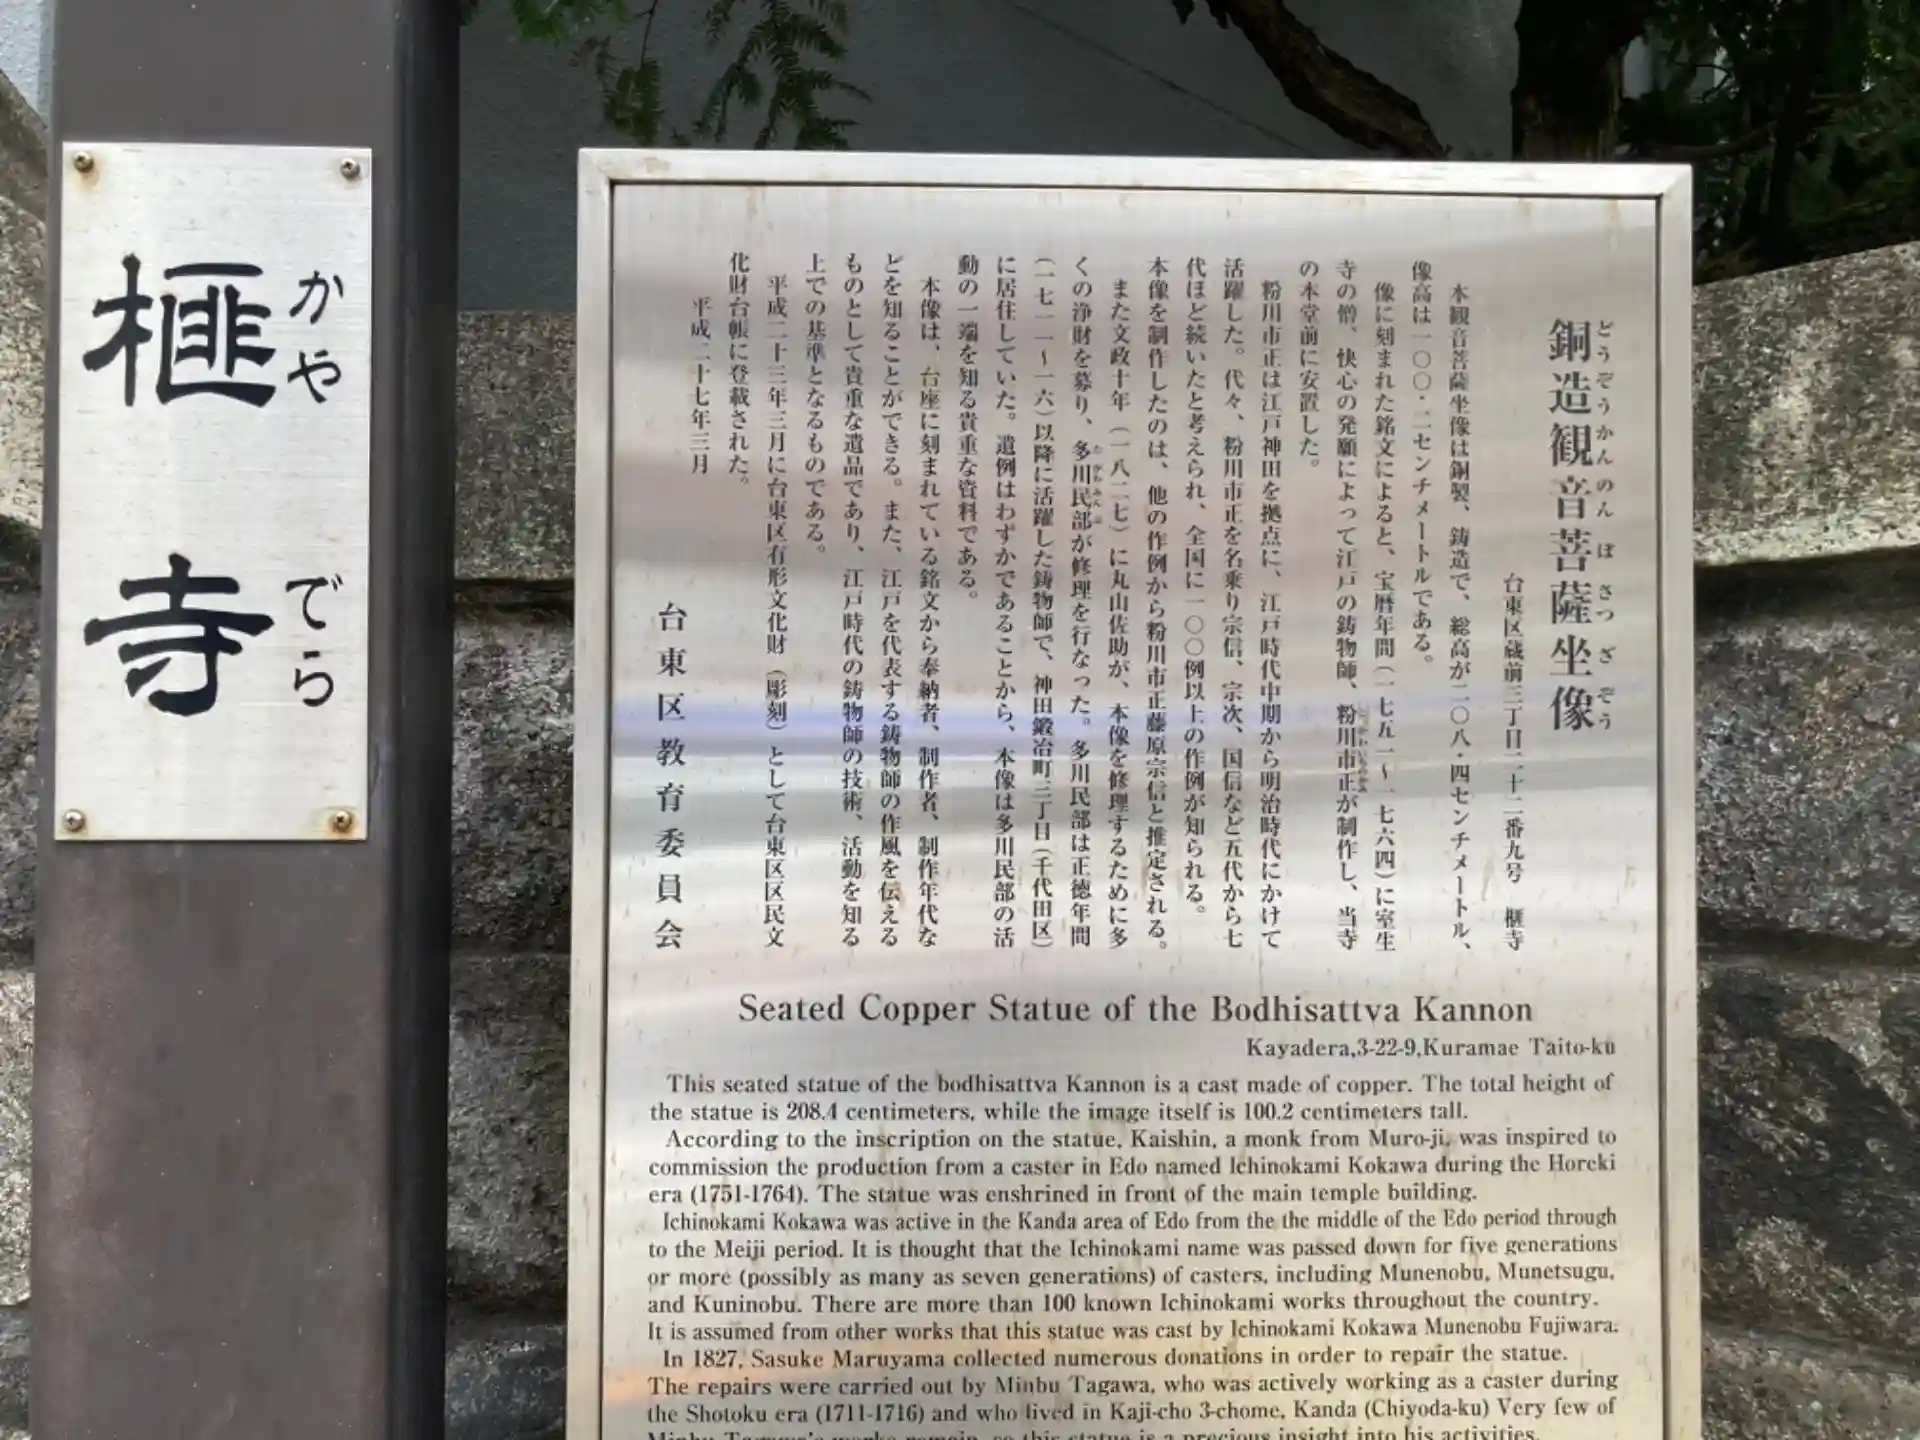 榧寺
かやでら
銅造観音菩薩坐像
どうぞうかんのんぼさつざぞう
台東区蔵前三丁目二十二番九号 榧寺
本観音菩薩坐像は銅製、鋳造で、総高が二〇八・四センチメートル、
像高は一〇〇・二センチメートルである。
像に刻まれた銘文によると、宝暦年間(一七五一～一七六四)に室生
寺の僧、快心の発願によって江戸の鋳物師、粉川市正が制作し、当寺
の本堂前に安置した。
粉川市正は江戸神田を拠点に、江戸時代中期から明治時代にかけて
活躍した。代々、粉川市正を名乗り宗信、宗次、国信など五代から七
代ほど続いたと考えられ、全国に一〇〇例以上の作例が知られる。
本像を制作したのは、他の作例から粉川市正藤原宗信と推定される。
また文政十年(一八二七)に丸山佐助が、本像を修理するために多
くの浄財を募り、多川民部が修理を行なった。多川民部は正徳年間
たがわみんぶ
(一七一一～一六)以降に活躍した鋳物師で、神田鍛冶町三丁目(千代田区)
に居住していた。遺例はわずかであることから、本像は多川民部の活
動の一端を知る貴重な資料である。
本像は、台座に刻まれている銘文から奉納者、制作者、制作年代な
どを知ることができる。また、江戸を代表する鋳物師の作風を伝える
ものとして貴重な遺品であり、江戸時代の鋳物師の技術、活動を知る
上での基準となるものである。
平成二十三年三月に台東区有形文化財(彫刻)として台東区区民文
化財台帳に登載された。
平成二十七年三月
台東区教育委員会
Seated Copper Statue of the Bodhisattva Kannon
Kayadera,3-22-9,Kuramae Taito-ku
This seated statue of the bodhisattva Kannon is a cast made of copper. The total height of
the statue is 208.4 centimeters, while the image itself is 100.2 centimeters tall.
According to the inscription on the statue, Kaishin, a monk from Muro-ji, was inspired to
commission the production from a caster in Edo named Ichinokami Kokawa during the Horeki
era (1751-1764). The statue was enshrined in front of the main temple building.
Ichinokami Kokawa was active in the Kanda area of Edo from the the middle of the Edo period through
to the Meiji period. It is thought that the Ichinokami name was passed down for five generations
or more (possibly as many as seven generations) of casters, including Munenobu, Munetsugu,
and Kuninobu. There are more than 100 known Ichinokami works throughout the country.
It is assumed from other works that this statue was cast by Ichinokami Kokawa Munenobu Fujiwara.
In 1827, Sasuke Maruyama collected numerous donations in order to repair the statue.
The repairs were carried out by Minbu Tagawa, who was actively working as a caster during
the Shotoku era (1711-1716) and who lived in Kaji-cho 3-chome, Kanda (Chiyoda-ku) Very few of
Minbu Tagawa's works remain, so this statue is a precious insight into his activities.